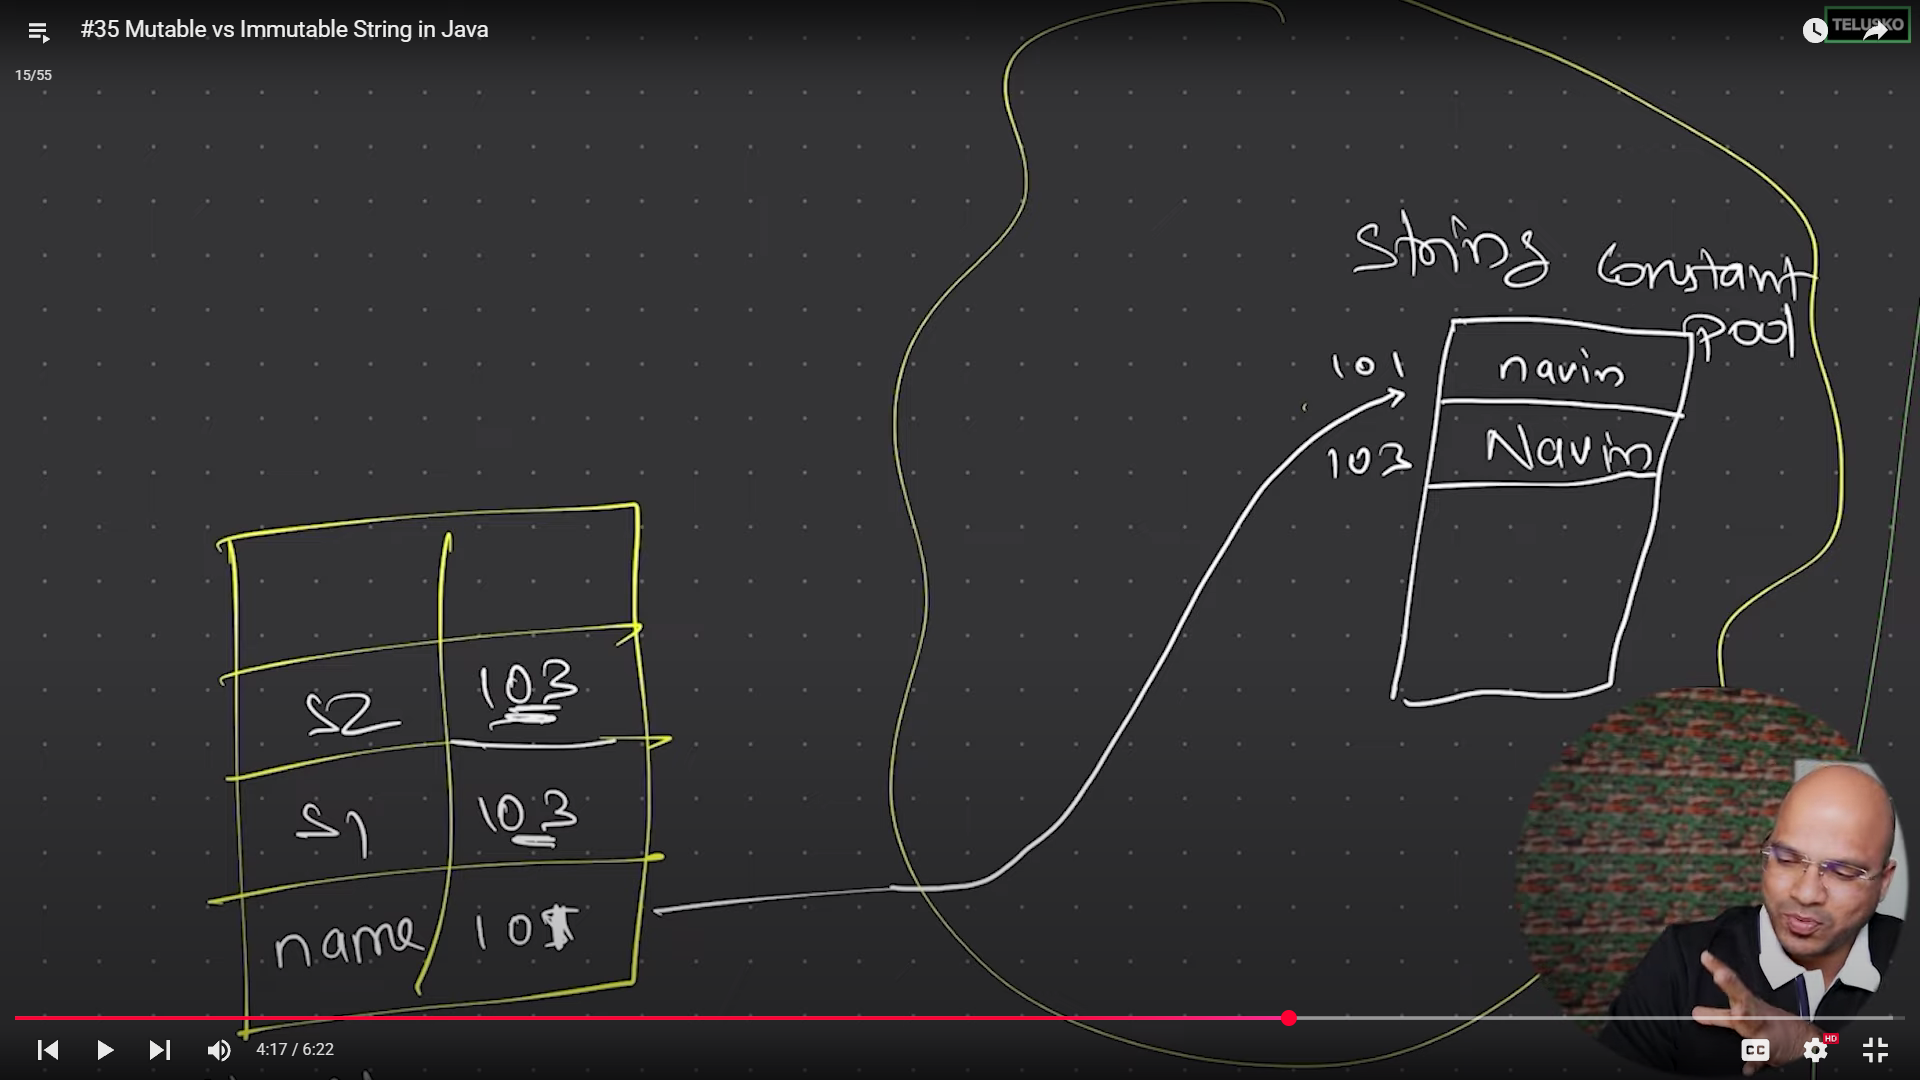 #35 Mutable vs Immutable String in Java
TELUSKO
15/55
String Constant
pool
101 navin
103 Navin
S2 103
S1 103
name 101
4:17 / 6:22
CC
HD